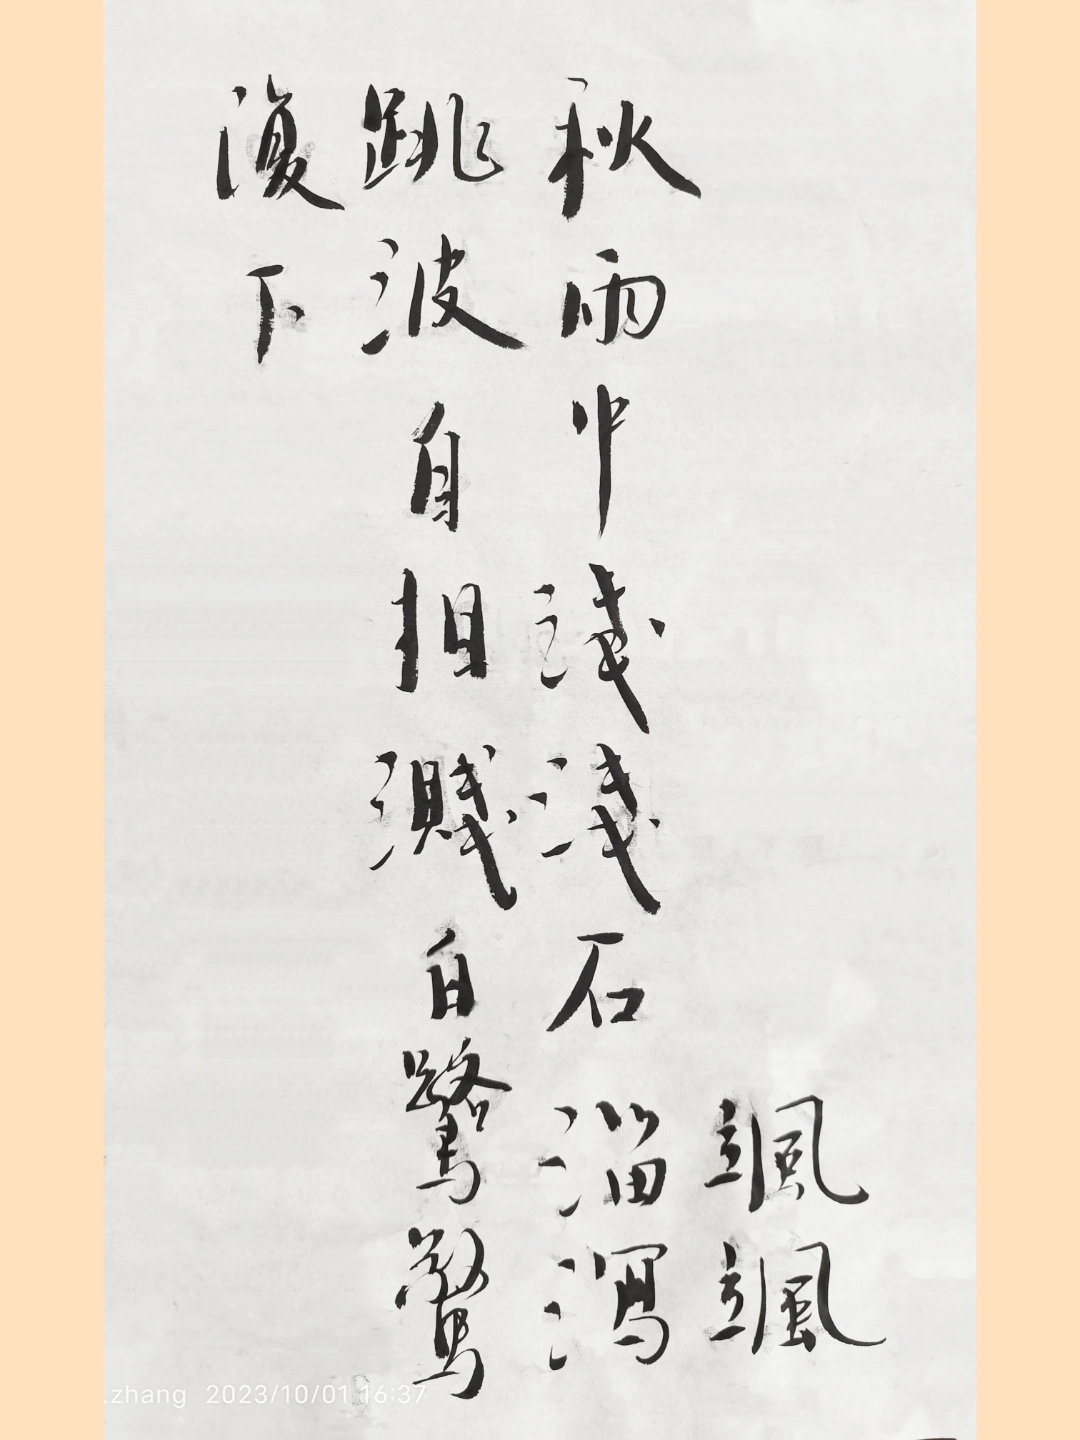 颯颯
秋雨中淺淺石溜瀉
跳波自相濺白鷺驚
復下
.zhang 2023/10/01 16:37